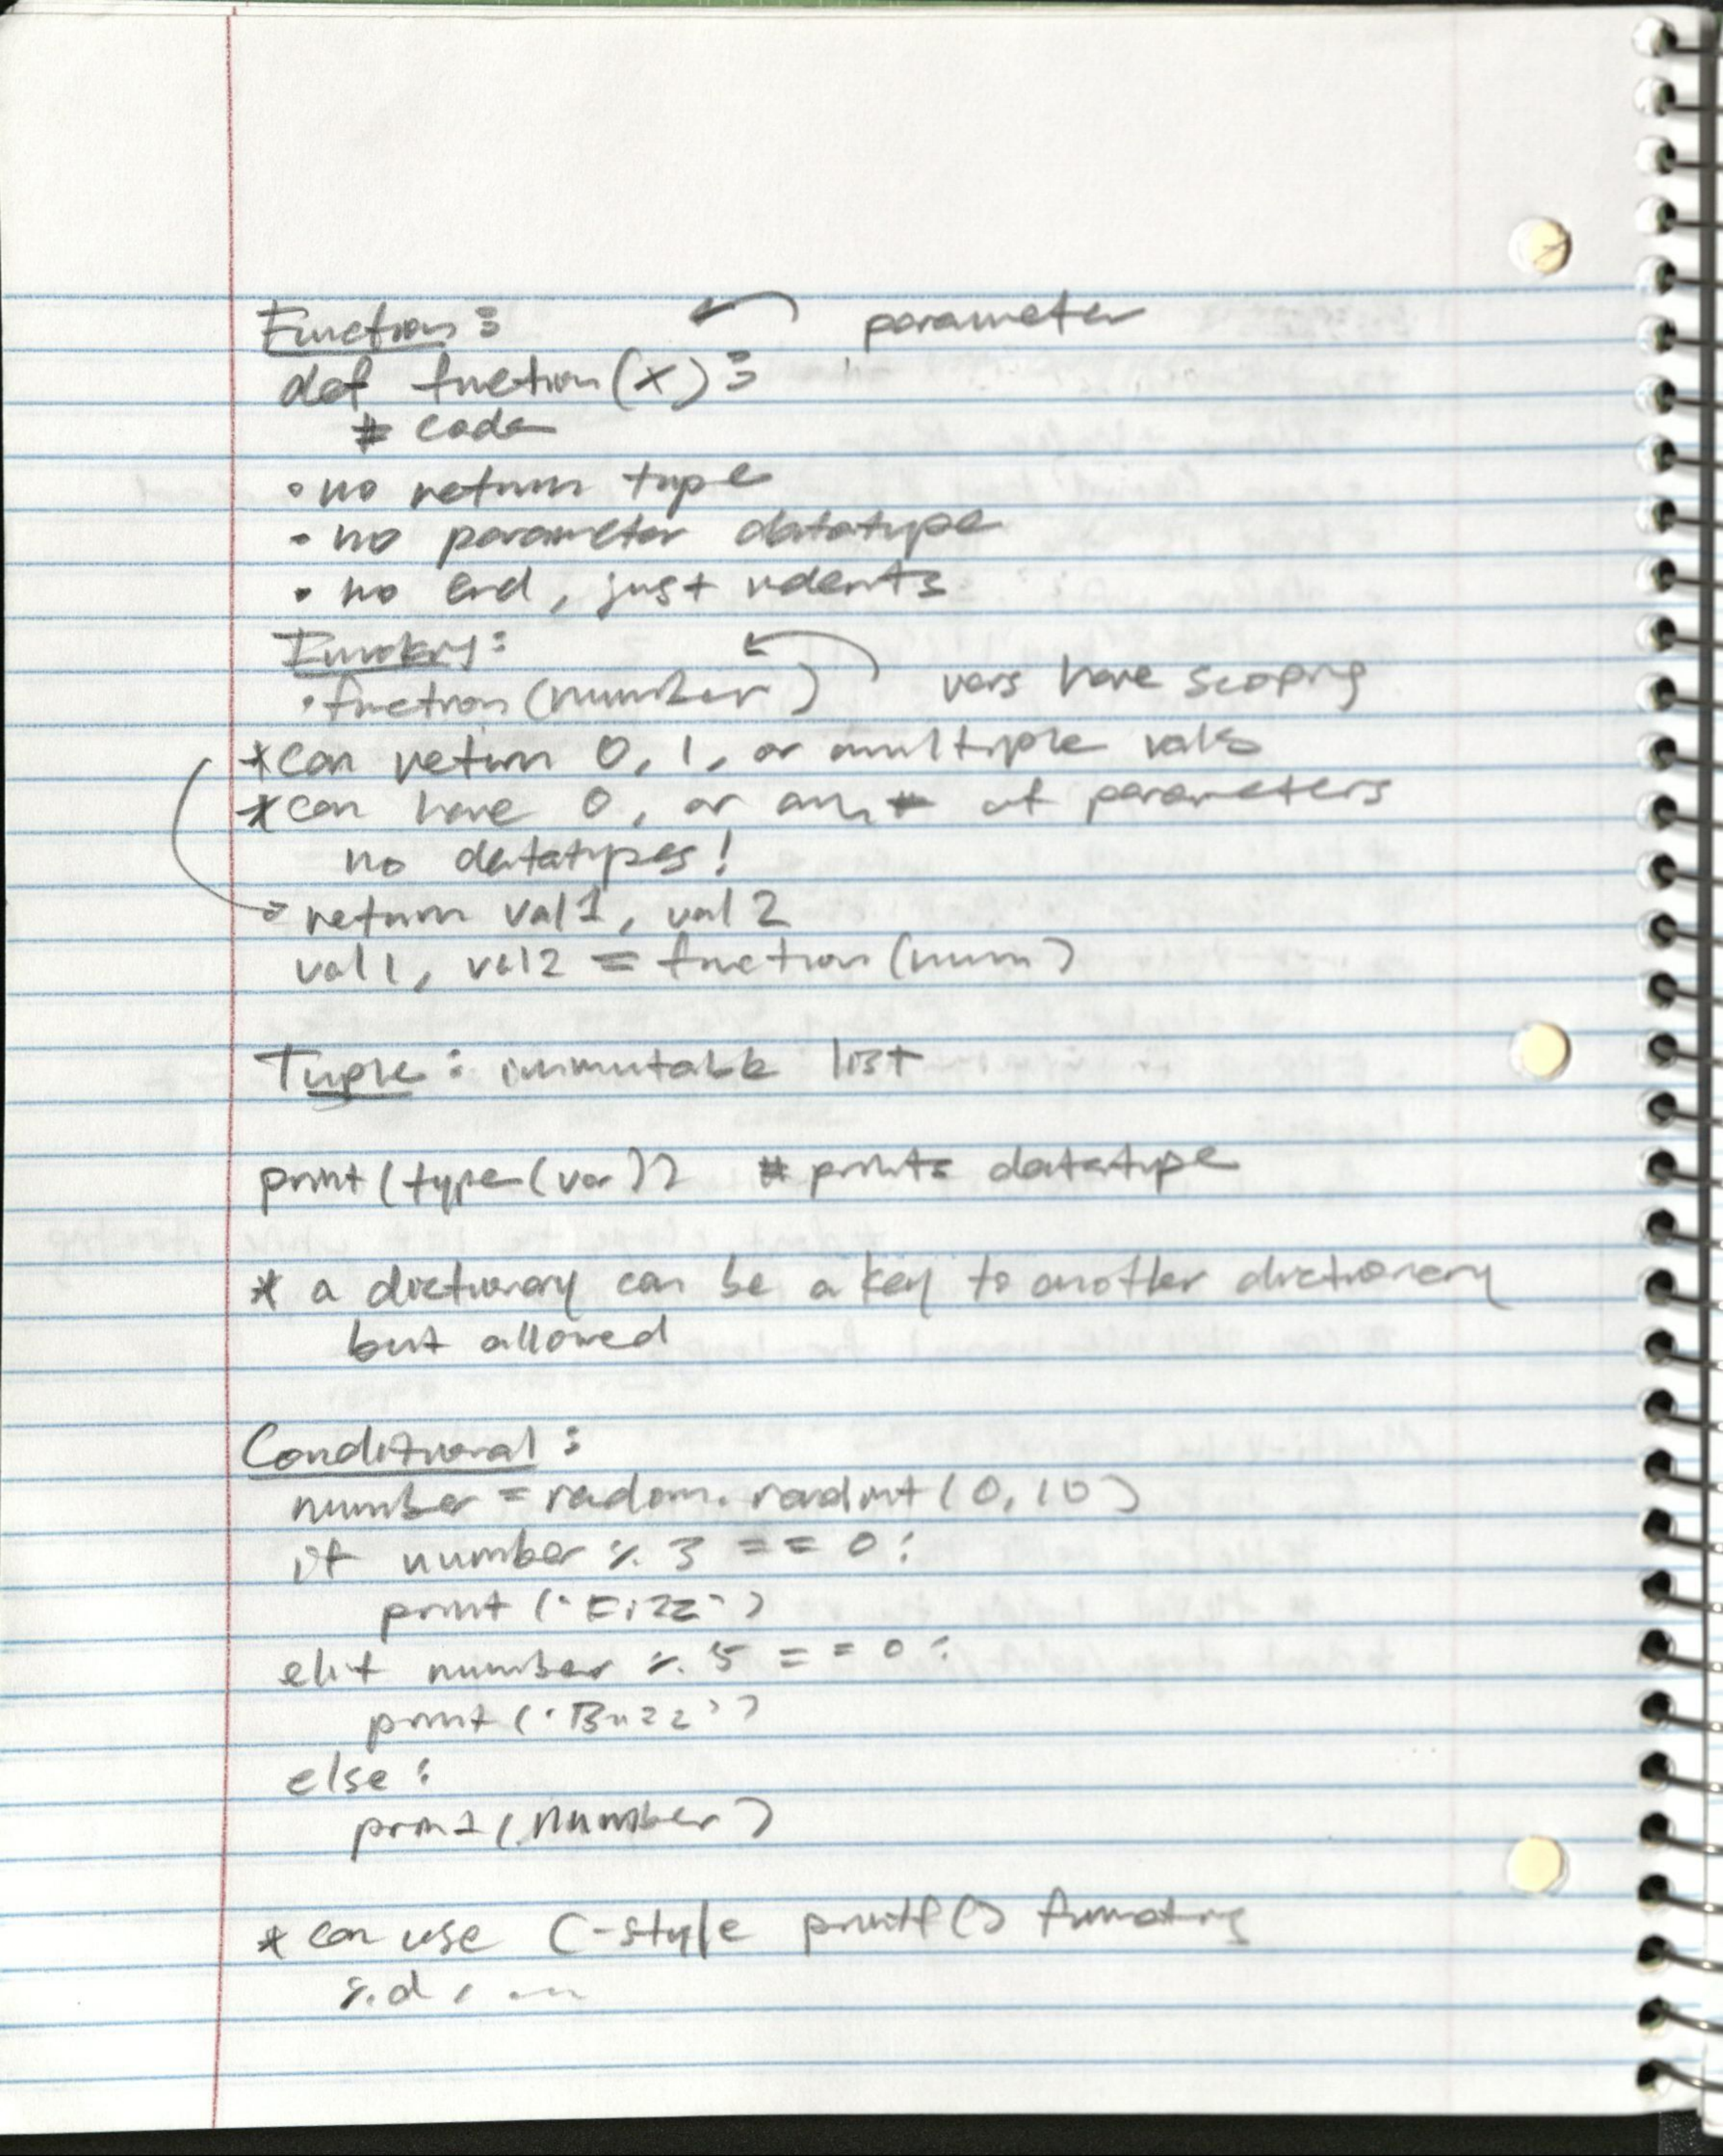 Function: parameter
def function(x):
# code
• no return type
• no parameter datatype
• no end, just indents
Invoking:
• function(number) vars have scoping
* can return 0, 1, or multiple vals
* can have 0, or any # of parameters
no datatypes!
return val1, val2
val1, val2 = function(num)
Tuple: immutable list
print(type(var)) # prints datatype
* a dictionary can be a key to another dictionary
but allowed
Conditional:
number = random.randint(0, 10)
if number % 3 == 0:
print('Fizz')
elif number % 5 == 0:
print('Buzz')
else:
print(number)
* can use C-style printf() formatting
%d, ...